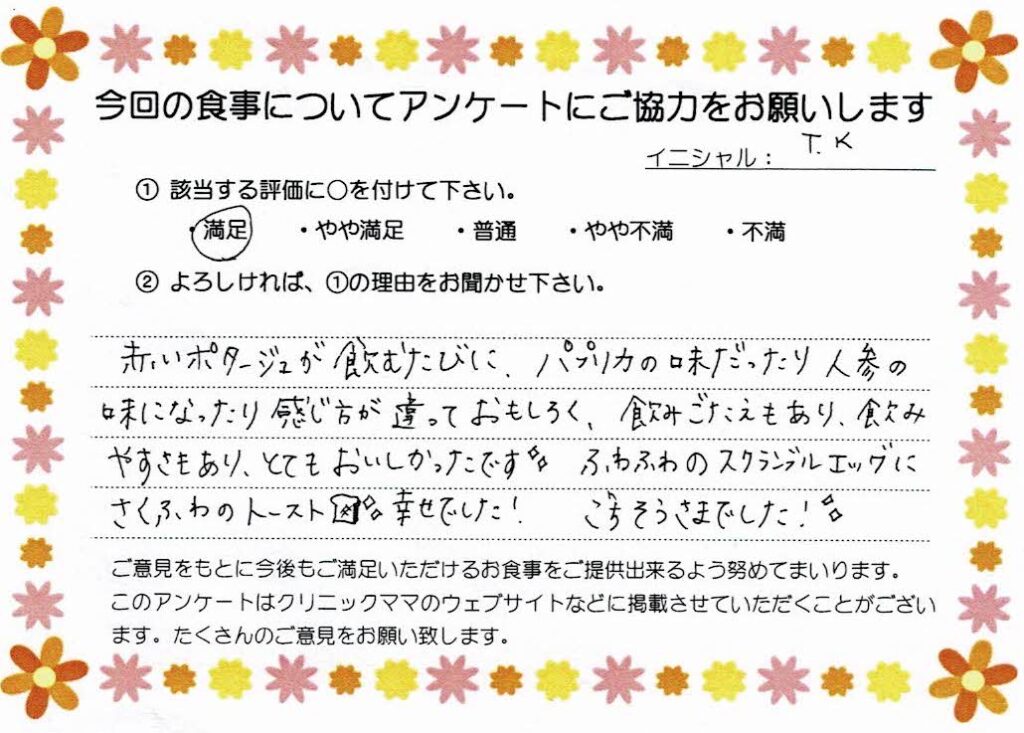 今回の食事についてアンケートにご協力をお願いします
イニシャル： T.K
① 該当する評価に○を付けて下さい。
・満足 ・やや満足 ・普通 ・やや不満 ・不満
② よろしければ、①の理由をお聞かせ下さい。
赤いポタージュが飲むたびに、パプリカの味だったり人参の
味になったり感じ方が違っておもしろく、飲みごたえもあり、飲み
やすさもあり、とてもおいしかったです ふわふわのスクランブルエッグに
さくふわのトースト幸せでした! ごちそうさまでした!
ご意見をもとに今後もご満足いただけるお食事をご提供出来るよう努めてまいります。
このアンケートはクリニックママのウェブサイトなどに掲載させていただくことがござい
ます。たくさんのご意見をお願い致します。